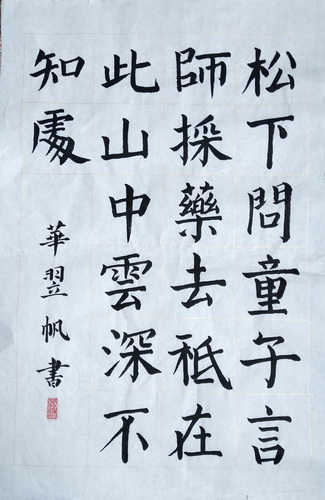 松下問童子言
師採藥去祗在
此山中雲深不
知處
華翌帆書